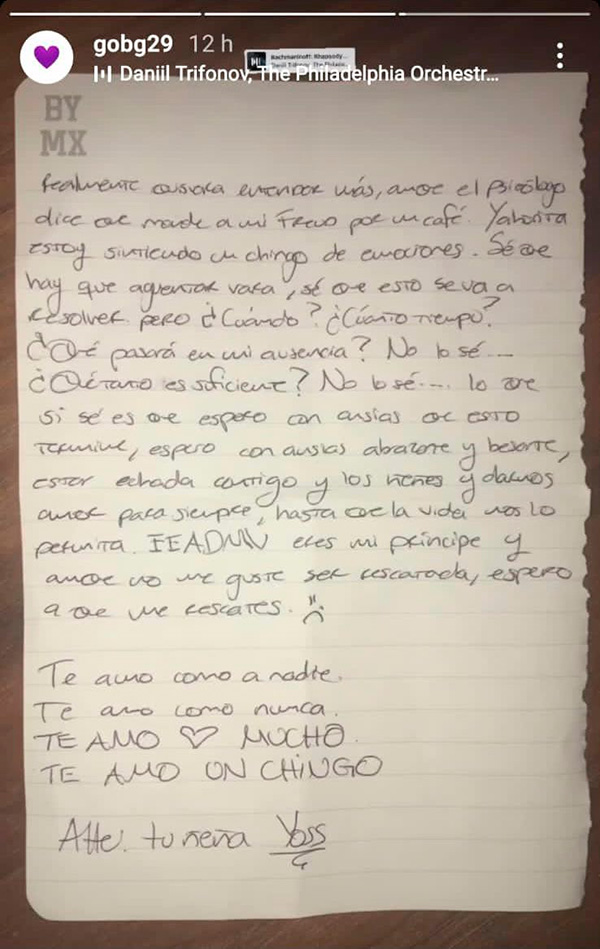 gobg29 12 h
Rachmaninoff: Rhapsody...
Daniil Trifonov, The Philadelphia Orchestr...
BY
MX
Realmente quisiera entender más, aunque el psicólogo
dice que mande a mi Freud por un café. Y ahorita
estoy sintiendo un chingo de emociones. Sé que
hay que aguantar vara, sé que esto se va a
resolver pero ¿Cuándo? ¿Cuánto tiempo?
¿Qué pasará en mi ausencia? No lo sé...
¿Qué tanto es suficiente? No lo sé.... lo que
si sé es que espero con ansias que esto
termine, espero con ansias abrazarte y besarte,
estar echada contigo y los nenes y darnos
amor para siempre, hasta que la vida nos lo
permita. eres mi príncipe y
aunque no me guste ser rescatada, espero
a que me rescates.
Te amo como a nadie.
Te amo como nunca.
TE AMO MUCHO.
TE AMO UN CHINGO
Atte. tu nena Yoss